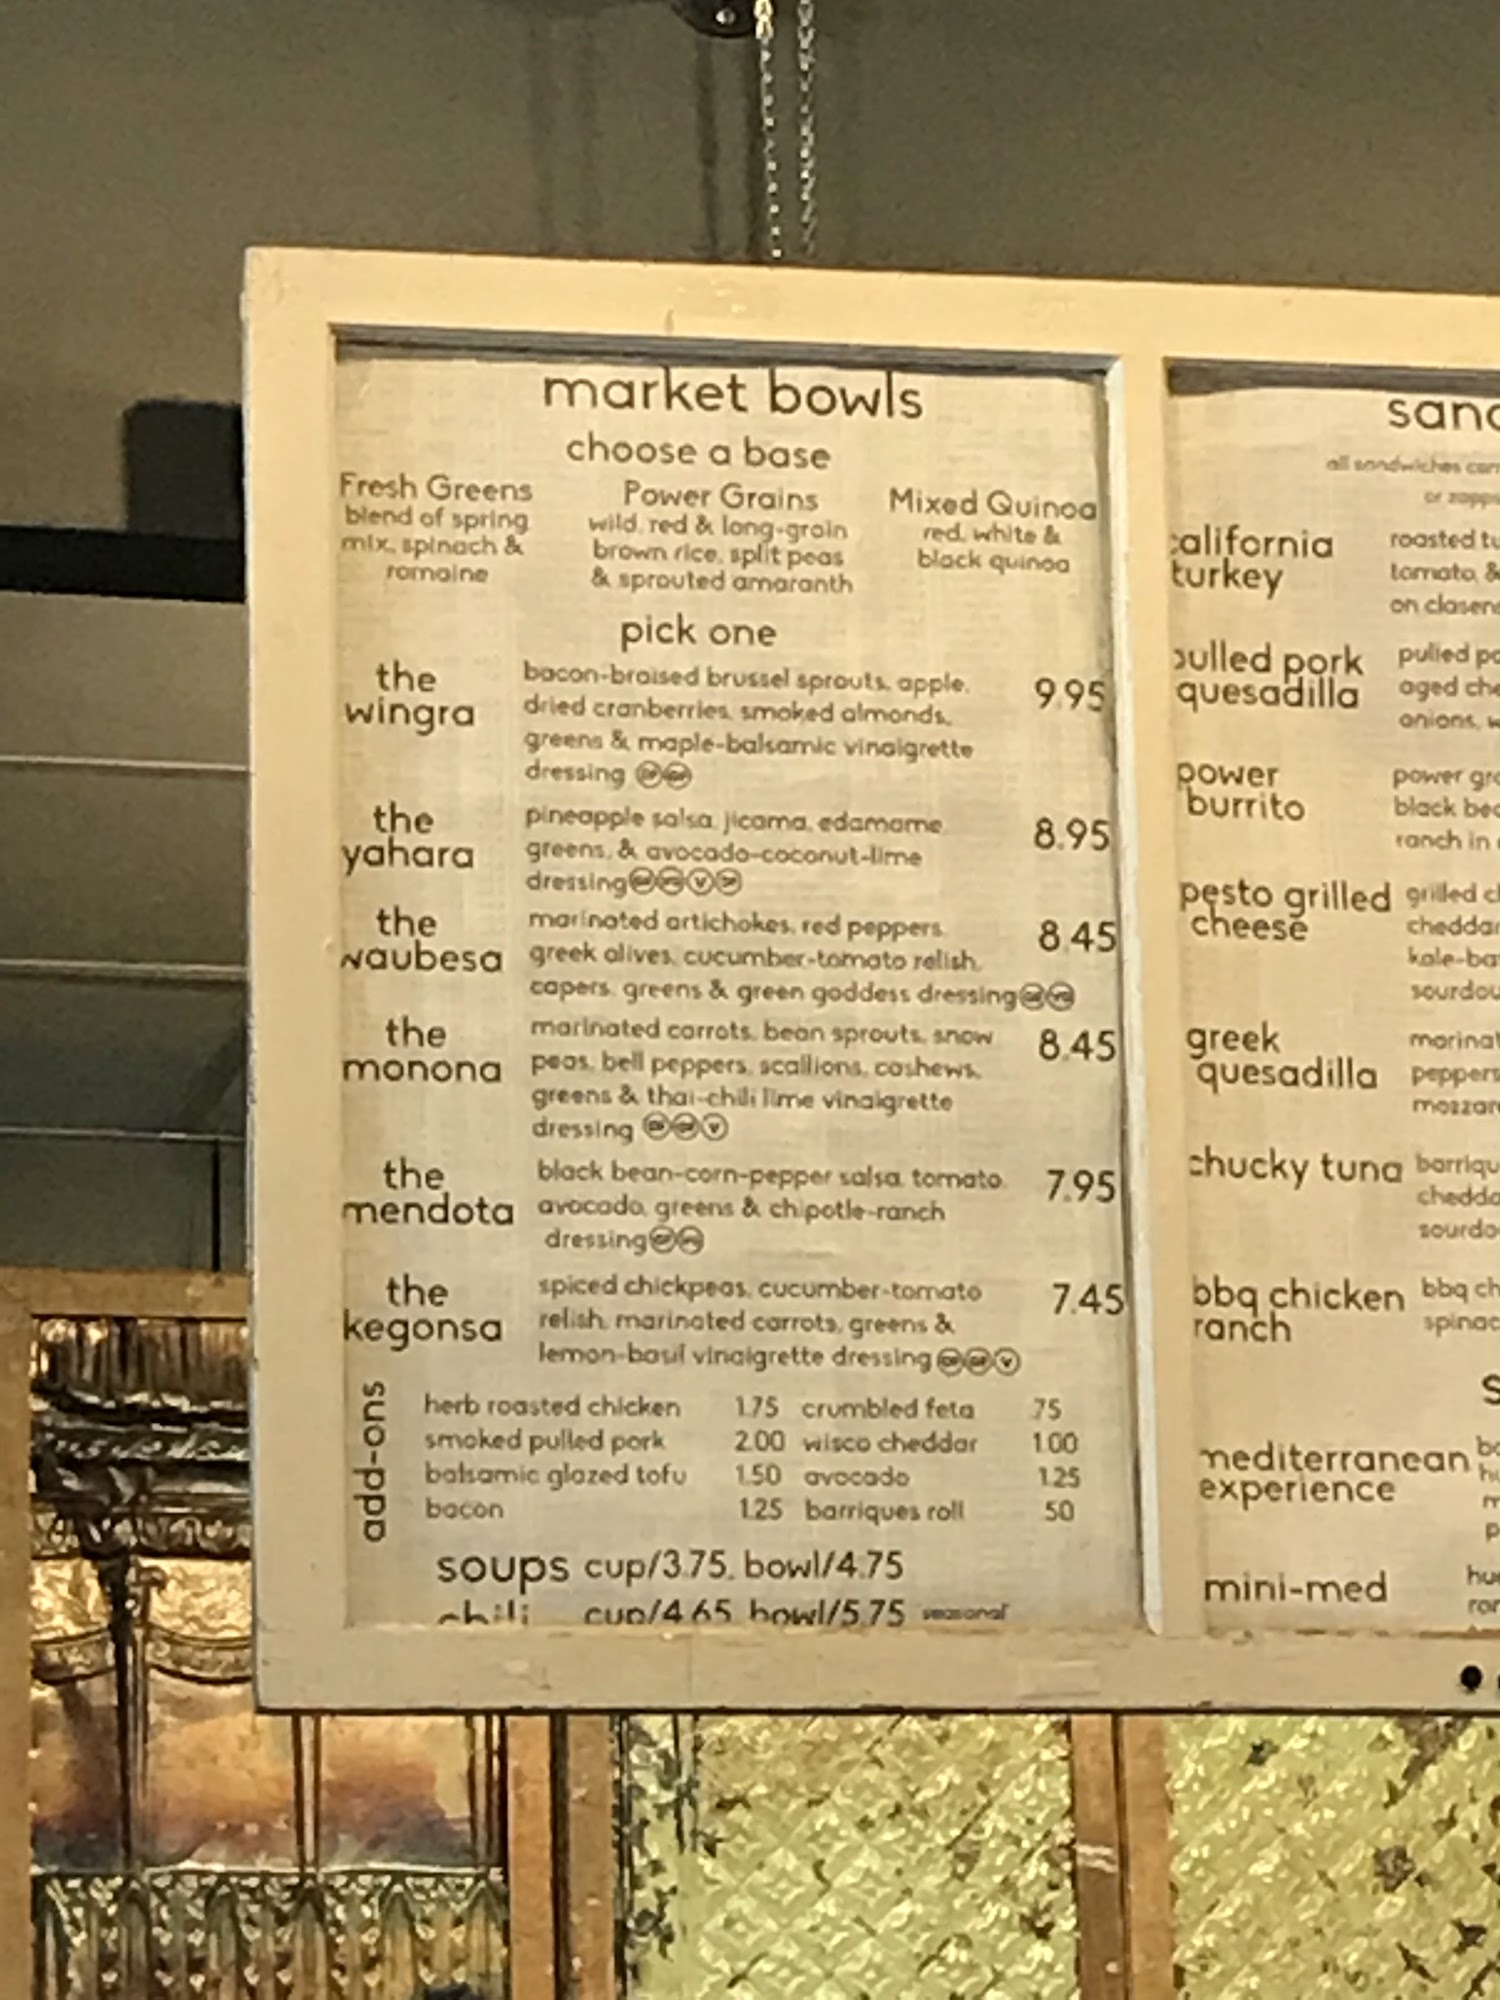 market bowls
choose a base
Fresh Greens
blend of spring
mix, spinach &
romaine
Power Grains
wild, red & long-grain
brown rice, split peas
& sprouted amaranth
Mixed Quinoa
red, white &
black quinoa
pick one
the
wingra
bacon-braised brussel sprouts, apple,
dried cranberries, smoked almonds,
greens & maple-balsamic vinaigrette
dressing
9.95
the
yahara
pineapple salsa, jicama, edamame
greens, & avocado-coconut-lime
dressing
8.95
the
waubesa
marinated artichokes, red peppers
greek olives, cucumber-tomato relish,
capers, greens & green goddess dressing
8.45
the
monona
marinated carrots, bean sprouts, snow
peas, bell peppers, scallions, cashews,
greens & thai-chili lime vinaigrette
dressing
8.45
the
mendota
black bean-corn-pepper salsa, tomato
avocado, greens & chipotle-ranch
dressing
7.95
the
kegonsa
spiced chickpeas, cucumber-tomato
relish, marinated carrots, greens &
lemon-basil vinaigrette dressing
7.45
add-ons
herb roasted chicken 1.75 crumbled feta .75
smoked pulled pork 2.00 wisco cheddar 1.00
balsamic glazed tofu 1.50 avocado 1.25
bacon 1.25 barriques roll .50
soups cup/3.75, bowl/4.75
chili cup/4.65 bowl/5.75 seasonal
all sandwiches
or
california
turkey
roasted
tomato, &
on
pulled pork
quesadilla
pulled
aged
onions,
power
burrito
power
black
ranch in
pesto grilled
cheese
grilled
cheddar
greek
quesadilla
peppers
chucky tuna
bbq chicken
ranch
bbq
mediterranean
experience
mini-med